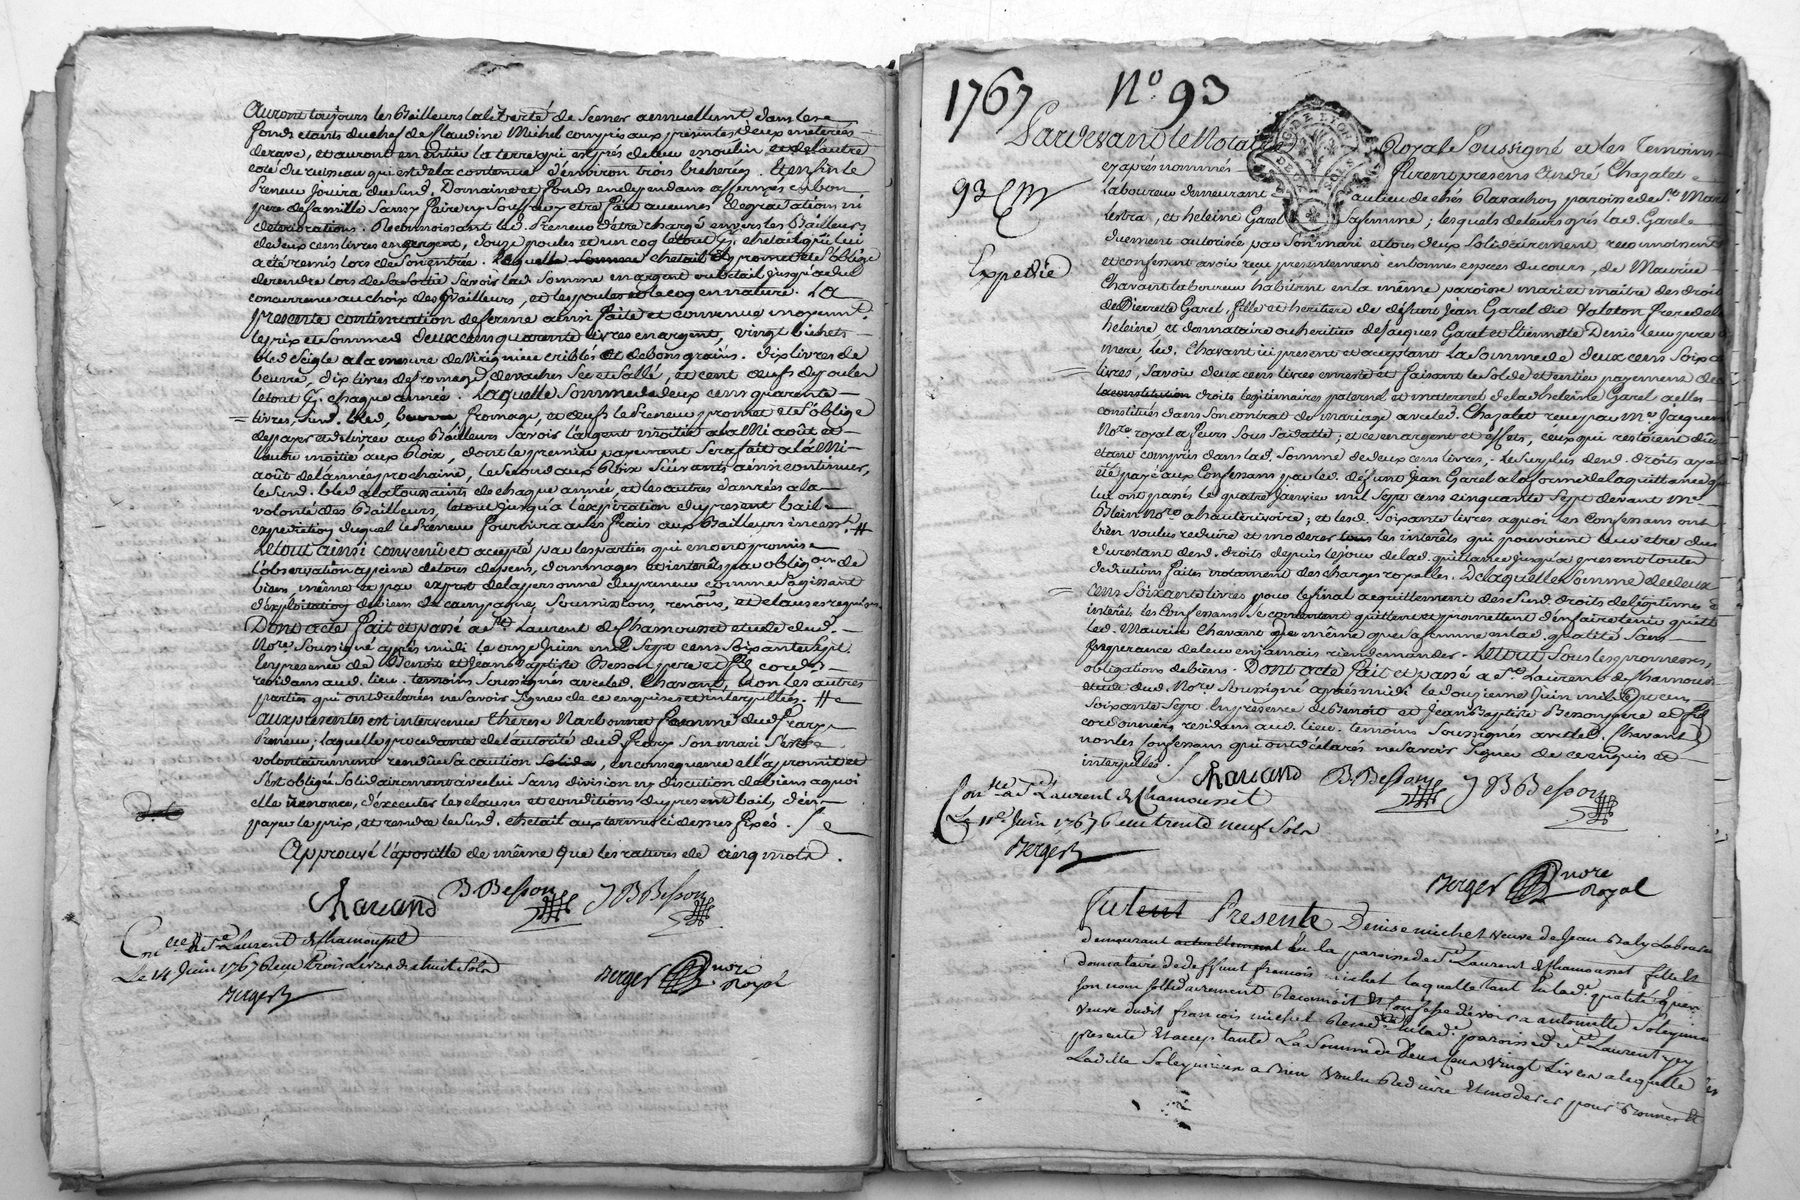 Auront toujours les Bailleurs la liberté de semer annuellement dans les
fonds étants du chef de Claudine Michel compris aux présentes deux meterées
de rave, et auront en entier la terre qui est près de leur moulin et de l'autre
coté du ruisseau qui est de la contenue d'environ trois bicherées. Et enfin le
Preneur jouira dud. Domaine et fonds en dependans affermés en bon
pere de famille sans y faire ny souffrir y etre fait aucunes degradations ni
deteriorations. Reconnoissant led. Preneur d'être chargé envers les Bailleurs
de deux cens livres en argent, douze poules et un coq le tout
a été remis lors de son entrée. Laquelle somme chetail il promet et s'oblige
de rendre lors de sa sortie Savoir lad. somme en argent ou betail jusqu'a due
concurrence au choix des Bailleurs, et les poules et le coq en nature. La
presente continuation de ferme ainsi faite et convenue moyennt
le prix et somme de deux cens quarante livres en argent, vingt bichets
bled seigle a la mesure de criblés et de bons grains. dix livres de
beurre, dix livres de fromage, de vaches sec et sallé, et cent œufs de poules
le tout chaque année. Laquelle somme de deux cens quarante
livres, Susd. bled, beurre fromage, et œufs le Preneur promet et s'oblige
de payer et delivrer aux Bailleurs Savoir l'argent moitié a la Mi août et
l'autre moitié aux Roix, dont le premier payement sera fait a la Mi-
août de l'année prochaine, le second aux Roix suivants ainsi continuer,
le susd. bled a la toussaints de chaque année, et les autres danrées a la
volonté des Bailleurs, le tout jusqu'à l'expiration du present bail
expedition duquel le Preneur fournira a ses frais aux Bailleurs incesst. #
Le tout ainsi convenu et accepté par les parties qui en ont promis
l'observation a peine de tous depens, dommages et interets par obligon. de
biens même a par exprès de la personne du preneur comme s'agissant
d'exploitation de biens de campagne, soumissions, renons, et clauses requises
Dont acte fait et passé a St. Laurent de Chamousset etude dud.
Nore. Soussigné après midi le onze Juin mil Sept cens soixante Sept.
En presence de Benoit et Jean Baptiste Besson pere et fils cordrs.
residans aud. lieu. temoins Soussignés avec led. Chavand, et non les autres
parties qui ont declarées ne savoir signer de ce enquises et interpellées. #
aux présentes est intervenue Thérese Narbonne femme dud.
Preneur; laquelle procedante de l'autorité dud. son mari s'est
volontairement rendüe sa caution Solidre, en consequence elle a promit et
s'est obligée Solidairement avec lui sans division ny discution de biens a quoi
elle renonce, d'executer les clauses et conditions du present bail, d'en
payer le prix, et rendre le susd. chetail aux termes ci dessus fixés.
Approuvé l'apostille de même que les ratures de cinq mots.
Chavand B Besson J B Besson
Conlleé a St. Laurent de Chamousset
Le 14 Juin 1767 Reçu Trois Livres et huit Sols
Berger
Berger nore Royal
1767 N° 93
Pardevant le Notaire Royal Soussigné et les Temoins
cy après nommés furent presens André Chazalet
Laboureur demeurant au lieu de chés Parachon paroisse de St. Mart
lestra, et heleine Garel Sa femme; lesquels de leurs grés lad. Garel
duement autorisée par son mari et tous deux Solidairement reconnoissent
et confessent avoir reçu presentement en bonnes espèces du cours, de Maurice
Chavant laboureur habitant en la même paroisse mari et maitre des droits
de Pierrette Garel, fille et heritiere de défunt Jean Garel du Valeton frere de la
heleine et donnataire ou heritier de Jacques Garel et Etiennette Denis leurs pere
mere, led. Chavant ici present et acceptant La somme de deux cens soixante
livres, savoir deux cens livres en reste et faisant le solde et entier payement des
la constitution droits légitimaires paternel et maternel de lad. heleine Garel a elle
constitués dans son contrat de mariage avec led. Chazalet reçu par Me. Jacquem
Nore. royal a Feurs sous sa datte; et ce en argent et effets, ceux qui restoient dûs
etant compris dans lad. somme de deux cens livres. Le surplus desd. droits ayant
été payé aux Confessans par led. défunt Jean Garel a la forme de la quittance qu
lui ont passés le quatre Janvier mil sept cens cinquante sept devant Me.
Blein Nore. a hauterivoire; et lesd. soixante livres a quoi les Confessans ont
bien voulus reduire et moderer tous les interêts qui pouvoient leur être dus
du restant desd. droits depuis le jour de lad. quittance jusqu'a present toutes
deductions faites notament des charges royalles. De laquelle somme de deux
cens soixante livres pour le final acquittement des susd. droits de légitime &
interêts les Confessans se contentent quittent et promettent d'en faire tenir quitt
led. Maurice Chavant de même que sa femme en lad. qualité Sans
Esperance de leur en jamais rien demander. Le tout sous les promesses,
obligations de biens. Dont acte fait et passé a St. Laurent de Chamous
etude dud. Nore. Soussigné après midi le douzieme Juin mil sept cens
soixante Sept. En presence de Benoit et Jean Baptiste Besson pere et fils
cordonniers residans aud. lieu. temoins Soussignés avec led. Chavand
non les Confessans qui ont déclarés ne savoir signer de ce enquis et
interpellés.
93
Expediée
Chavand B Besson J B Besson
Conlleé a St. Laurent de Chamousset
Le Juin 1767 Reçu trente neuf Sols
Berger
Berger nore Royal
fut Presente Denise michel veuve de Jean Laboure
demeurant actuellement En la paroisse de St. Laurent de Chamousset fille et
donnataire de deffunt francois michel laquelle tant en lade. qualité que
son nom solidairement Reconnoit Et Confesse devoir a antoinette Soleymieu
veuve dudit francois michel en lade. paroisse de St. Laurent
presente Et acceptante La Somme de Deux Cens Vingt Livres a laquelle
Ladite Soleymieu a Bien Voulu Reduire Et moderer pour